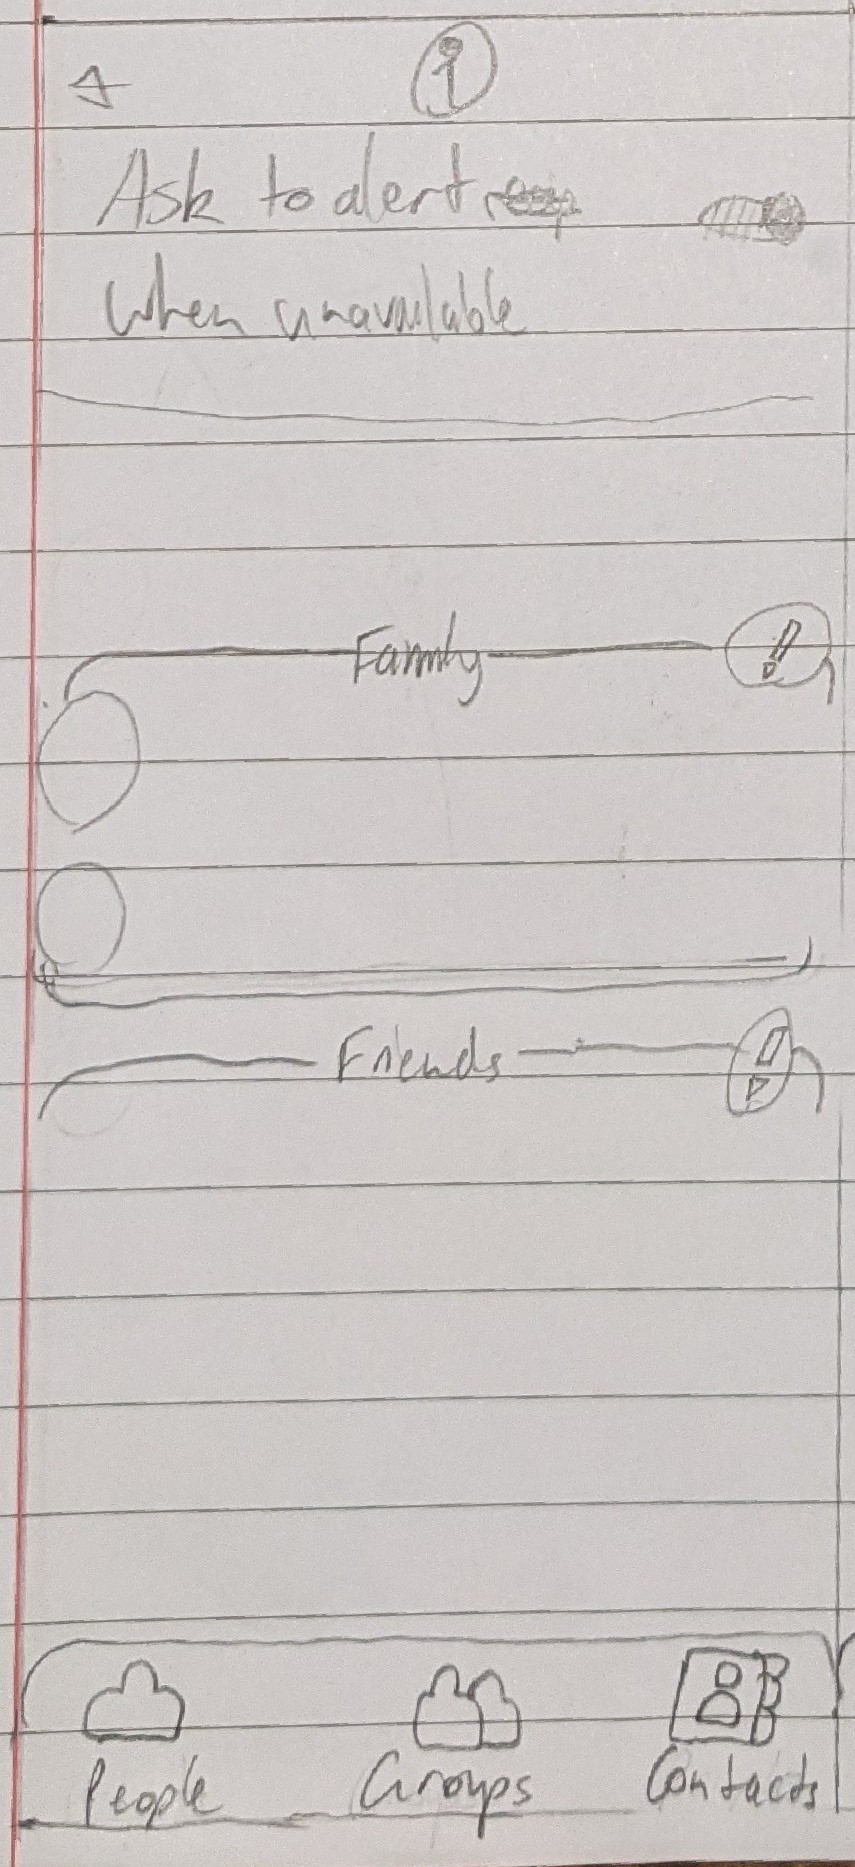 i
Ask to alert
when unavailable
Family
Friends
People Groups Contacts